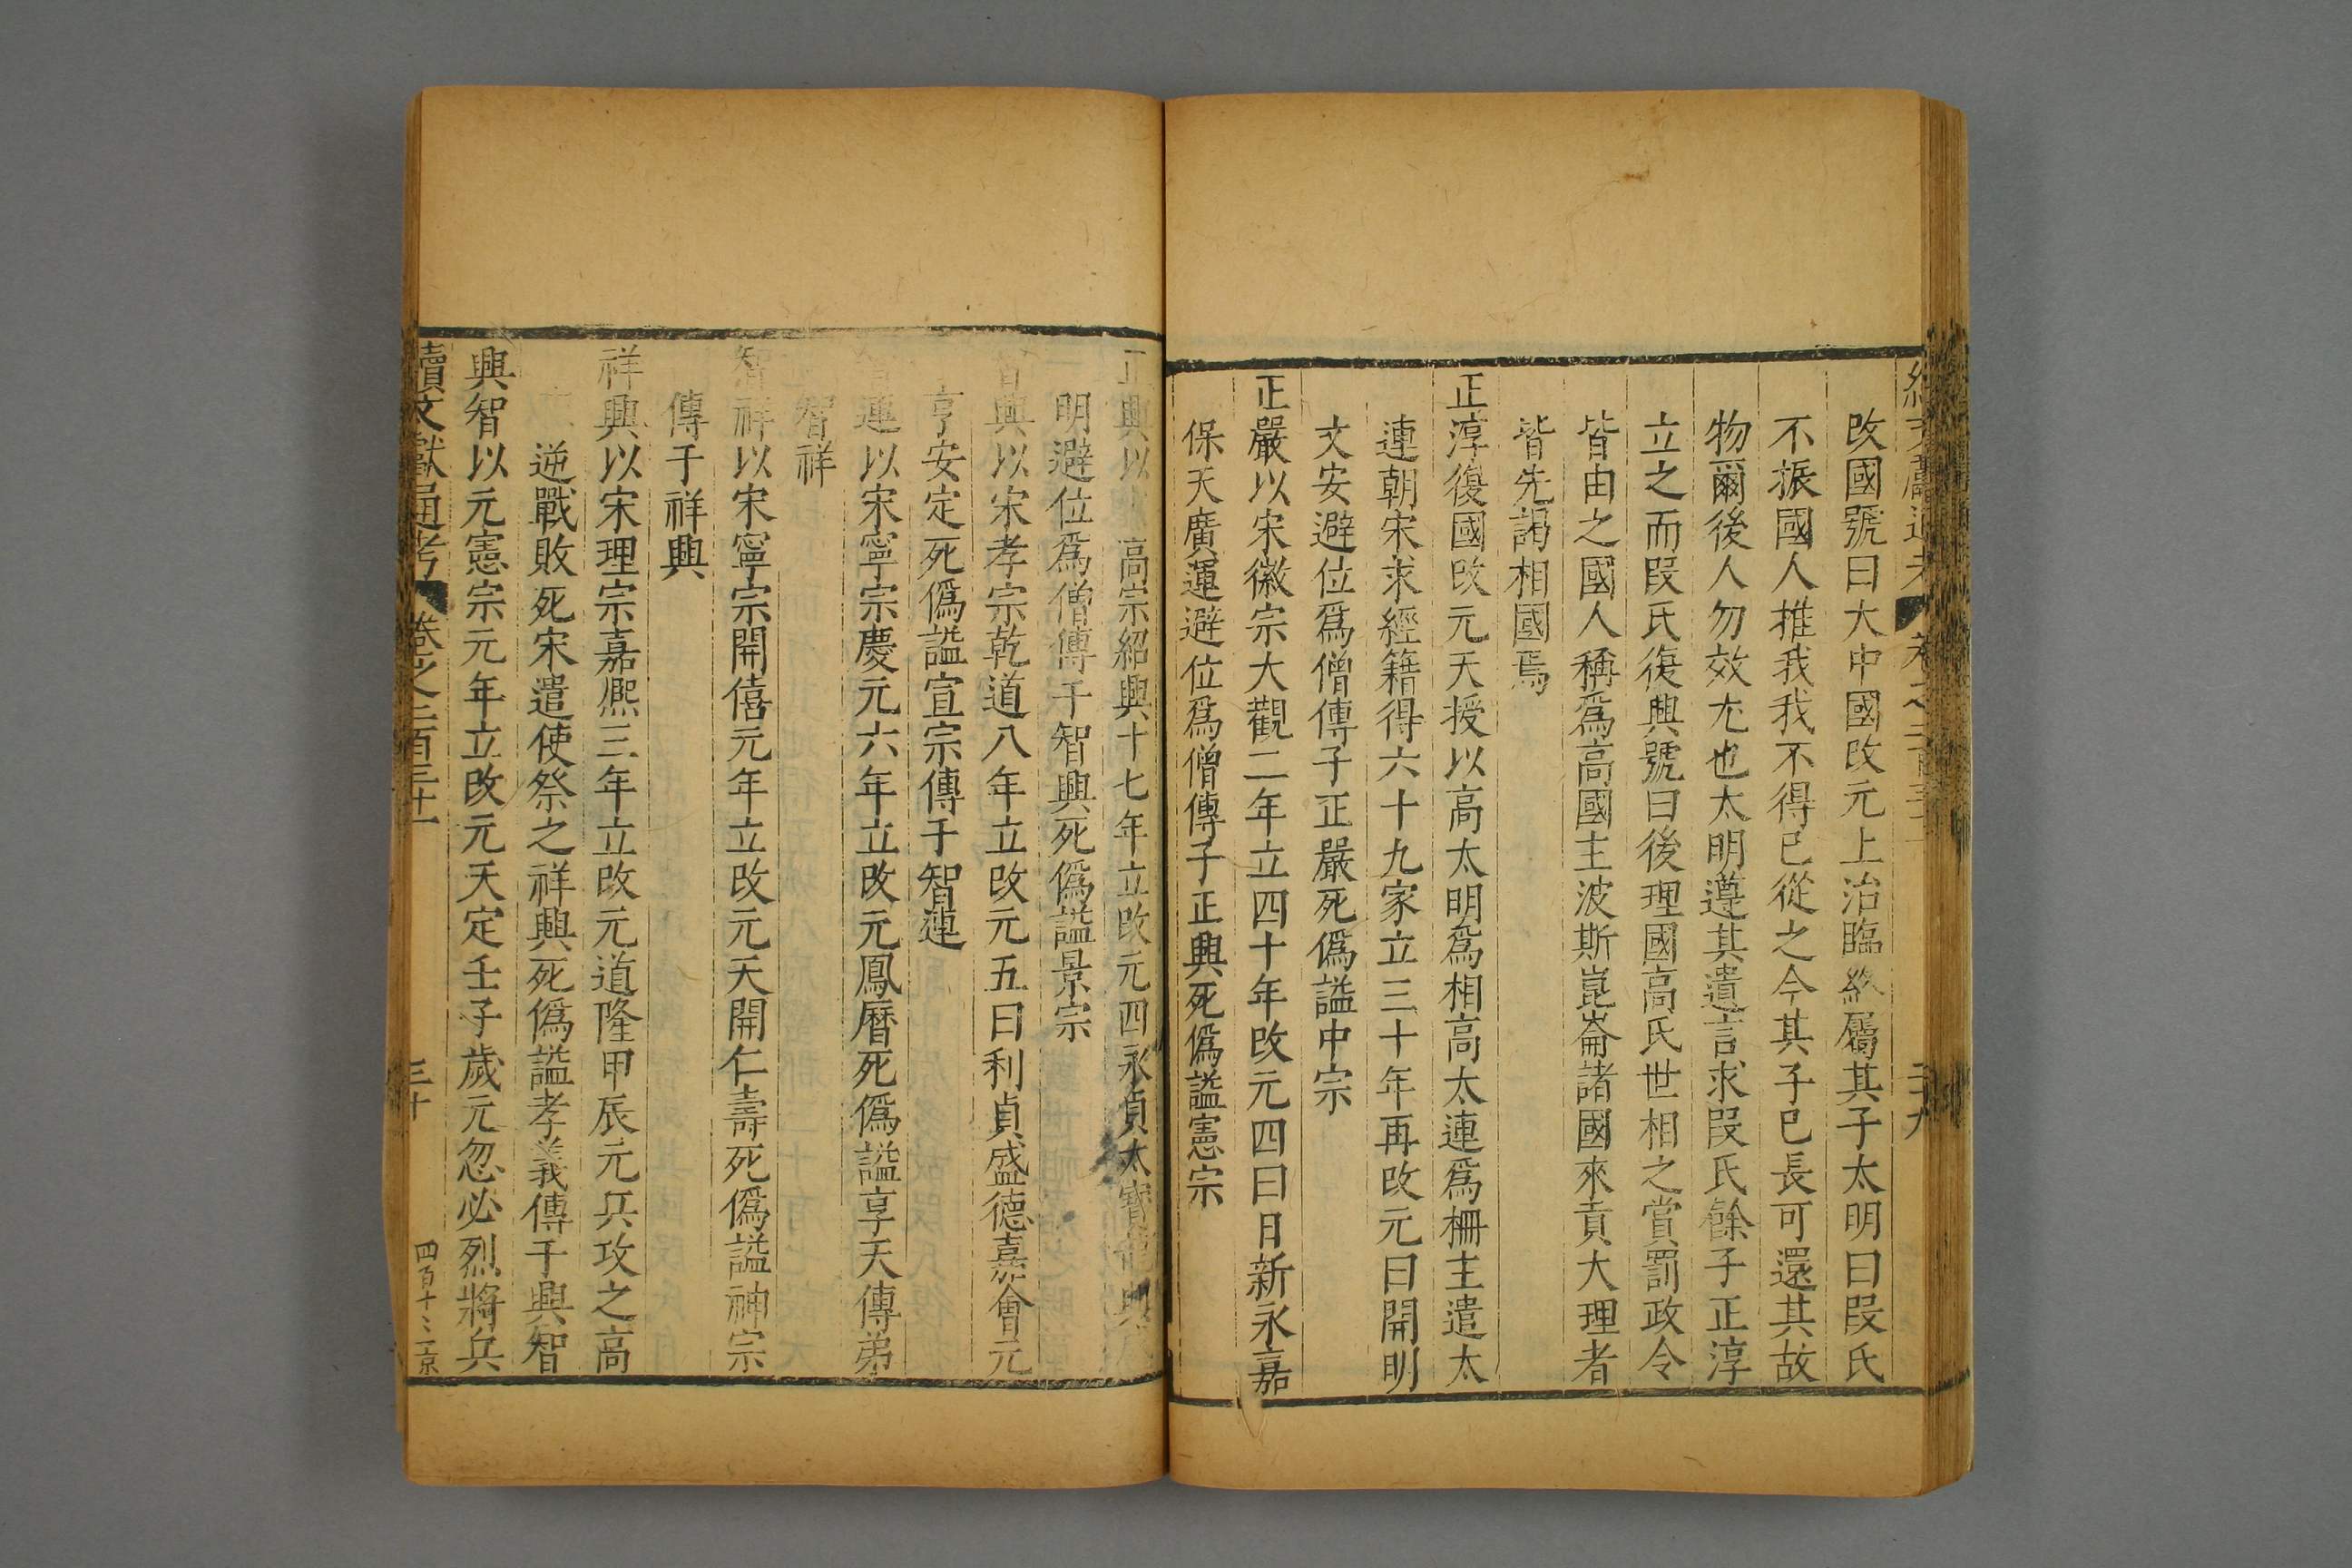 改國號曰大中國改元上治臨終屬其子太明曰段氏
不振國人推我我不得已從之今其子已長可還其故
物爾後人勿效尤也太明遵其遺言求段氏餘子正淳
立之而段氏復興號曰後理國高氏世相之賞罰政令
皆由之國人稱爲高國主波斯崑崙諸國來貢大理者
皆先謁相國焉
正淳復國改元天授以高太明爲相高太連爲柵主遣太
連朝宋求經籍得六十九家立三十年再改元曰開明
文安避位爲僧傳子正嚴死僞謚中宗
正嚴以宋徽宗大觀二年立四十年改元四曰日新永嘉
保天廣運避位爲僧傳子正興死僞謚憲宗
正興以 高宗紹興十七年立改元四永貞大寶龍興
明避位爲僧傳子智興死僞謚景宗
智興以宋孝宗乾道八年立改元五曰利貞盛德嘉會元
亨安定死僞謚宣宗傳子智連
智連以宋寧宗慶元六年立改元鳳曆死僞謚享天傳弟
智祥
智祥以宋寧宗開僖元年立改元天開仁壽死僞謚神宗
傳子祥興
祥興以宋理宗嘉熙三年立改元道隆甲辰元兵攻之高
逆戰敗死宋遣使祭之祥興死僞謚孝義傳子興智
興智以元憲宗元年立改元天定壬子歲元忽必烈將兵
續文獻通考 卷之二百三十一 三十 四百十三京